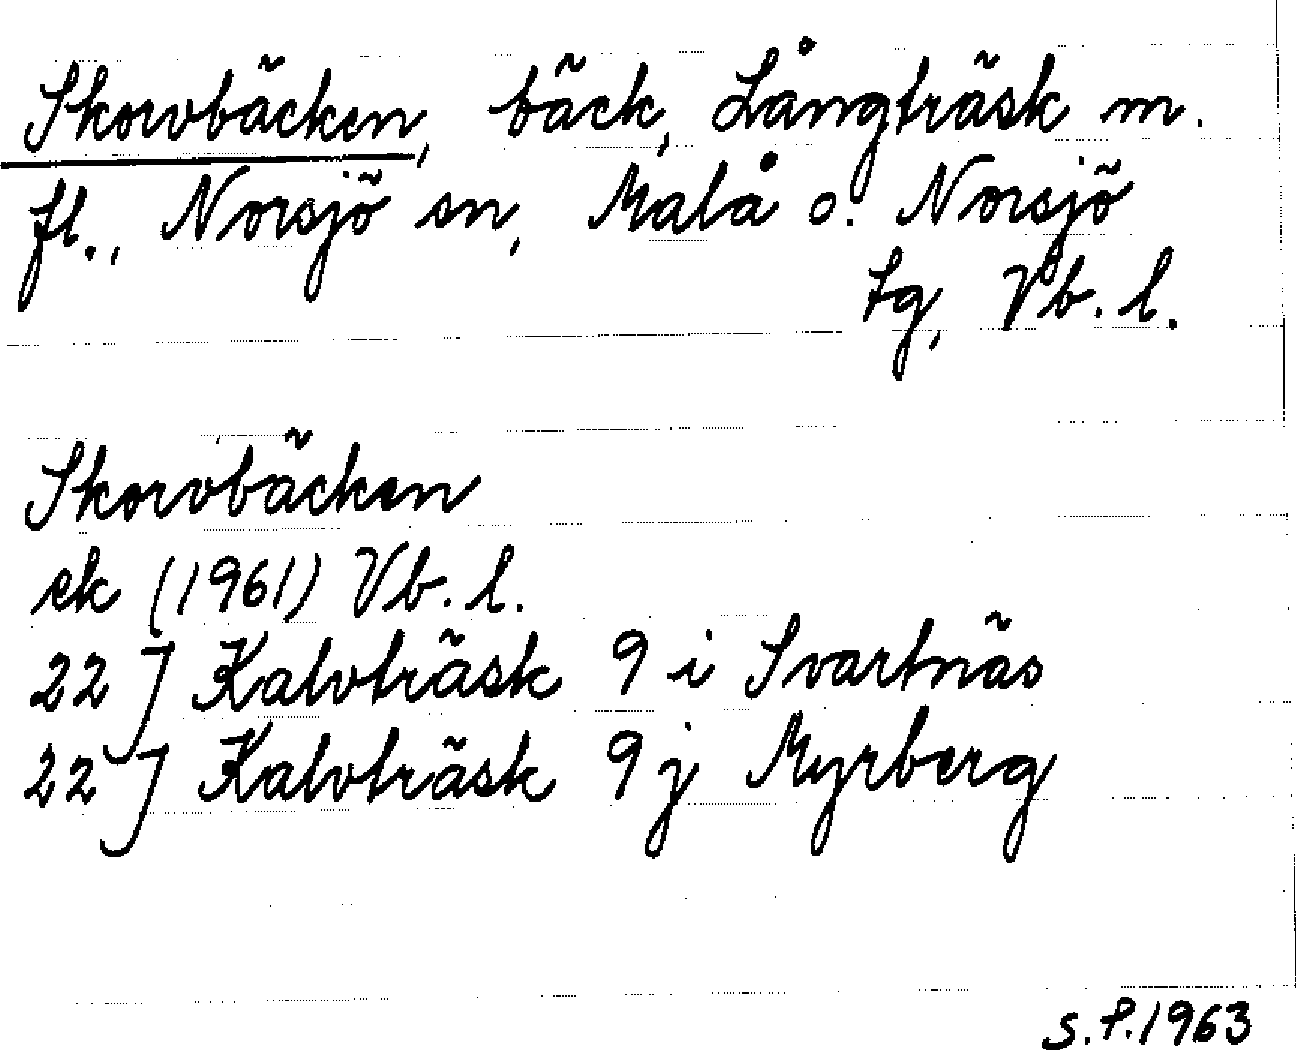 Skorvbäcken, bäck, Långträsk m.
fl., Norsjö sn, Malå o. Norsjö
tg, Vb. l.
Skorvbäcken
ek (1961) Vb. l.
22 J Kalvträsk 9 i Svartnäs
22 J Kalvträsk 9 j Myrberg
S.P. 1963